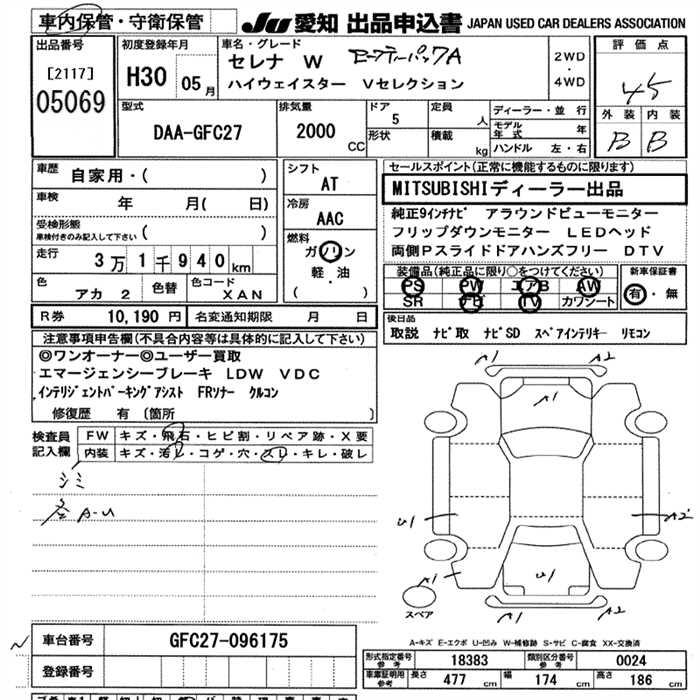 車内保管・守衛保管
JU 愛知 出品申込書 JAPAN USED CAR DEALERS ASSOCIATION
出品番号
[2117]
05069
初度登録年月
H30 05 月
車名・グレード
セレナ W セーフティーパックA
ハイウェイスター Vセレクション
2WD
・
4WD
評価点
4.5
外装 内装
B B
型式
DAA-GFC27
排気量
2000
CC
ドア
5
形状
定員
人
積載
kg
ディーラー・並行
モデル年式 年
ハンドル 左・右
車歴
自家用・( )
車検
年 月( 日)
受検形態
車検付きのみ記入して下さい ( )
走行
3万1千940km
色
アカ 2
色替
色コード
XAN
シフト
AT
冷房
AAC
燃料
ガソリン
軽・油
( )
セールスポイント(正常に機能するものに限ります)
MITSUBISHIディーラー出品
純正9インチナビ アラウンドビューモニター
フリップダウンモニター LEDヘッド
両側Pスライドドアハンズフリー DTV
装備品(純正品に限り○をつけてください)
PS PW エアB AW
SR ナビ TV カワシート
新車保証書
有・無
R券 10,190 円
名変通知期限 月 日
後日品
取説 ナビ取 ナビSD スペアインテリキー リモコン
注意事項申告欄(不具合内容等は具体的に記入して下さい)
◎ワンオーナー◎ユーザー買取
エマージェンシーブレーキ LDW VDC
インテリジェントパーキングアシスト FRソナー クルコン
修復歴 有 (箇所 )
検査員記入欄
FW キズ・飛石・ヒビ割・リペア跡・X要
内装 キズ・汚れ・コゲ・穴・スレ・キレ・破レ
シミ
A-U
A1 A2
A1
U1 A2
A1 U1 A1
スペア
A-キズ E-エクボ U-凹み W-補修跡 S-サビ C-腐食 XX-交換済
車台番号 GFC27-096175
登録番号
形式指定番号 参考 18383
類別区分番号 参考 0024
車庫証明用 参考
長さ 477 cm
幅 174 cm
高さ 186 cm